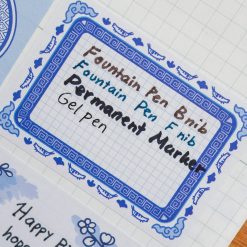 Fountain Pen B nib
Fountain Pen F nib
Permanent Marker
Gel pen
Happy